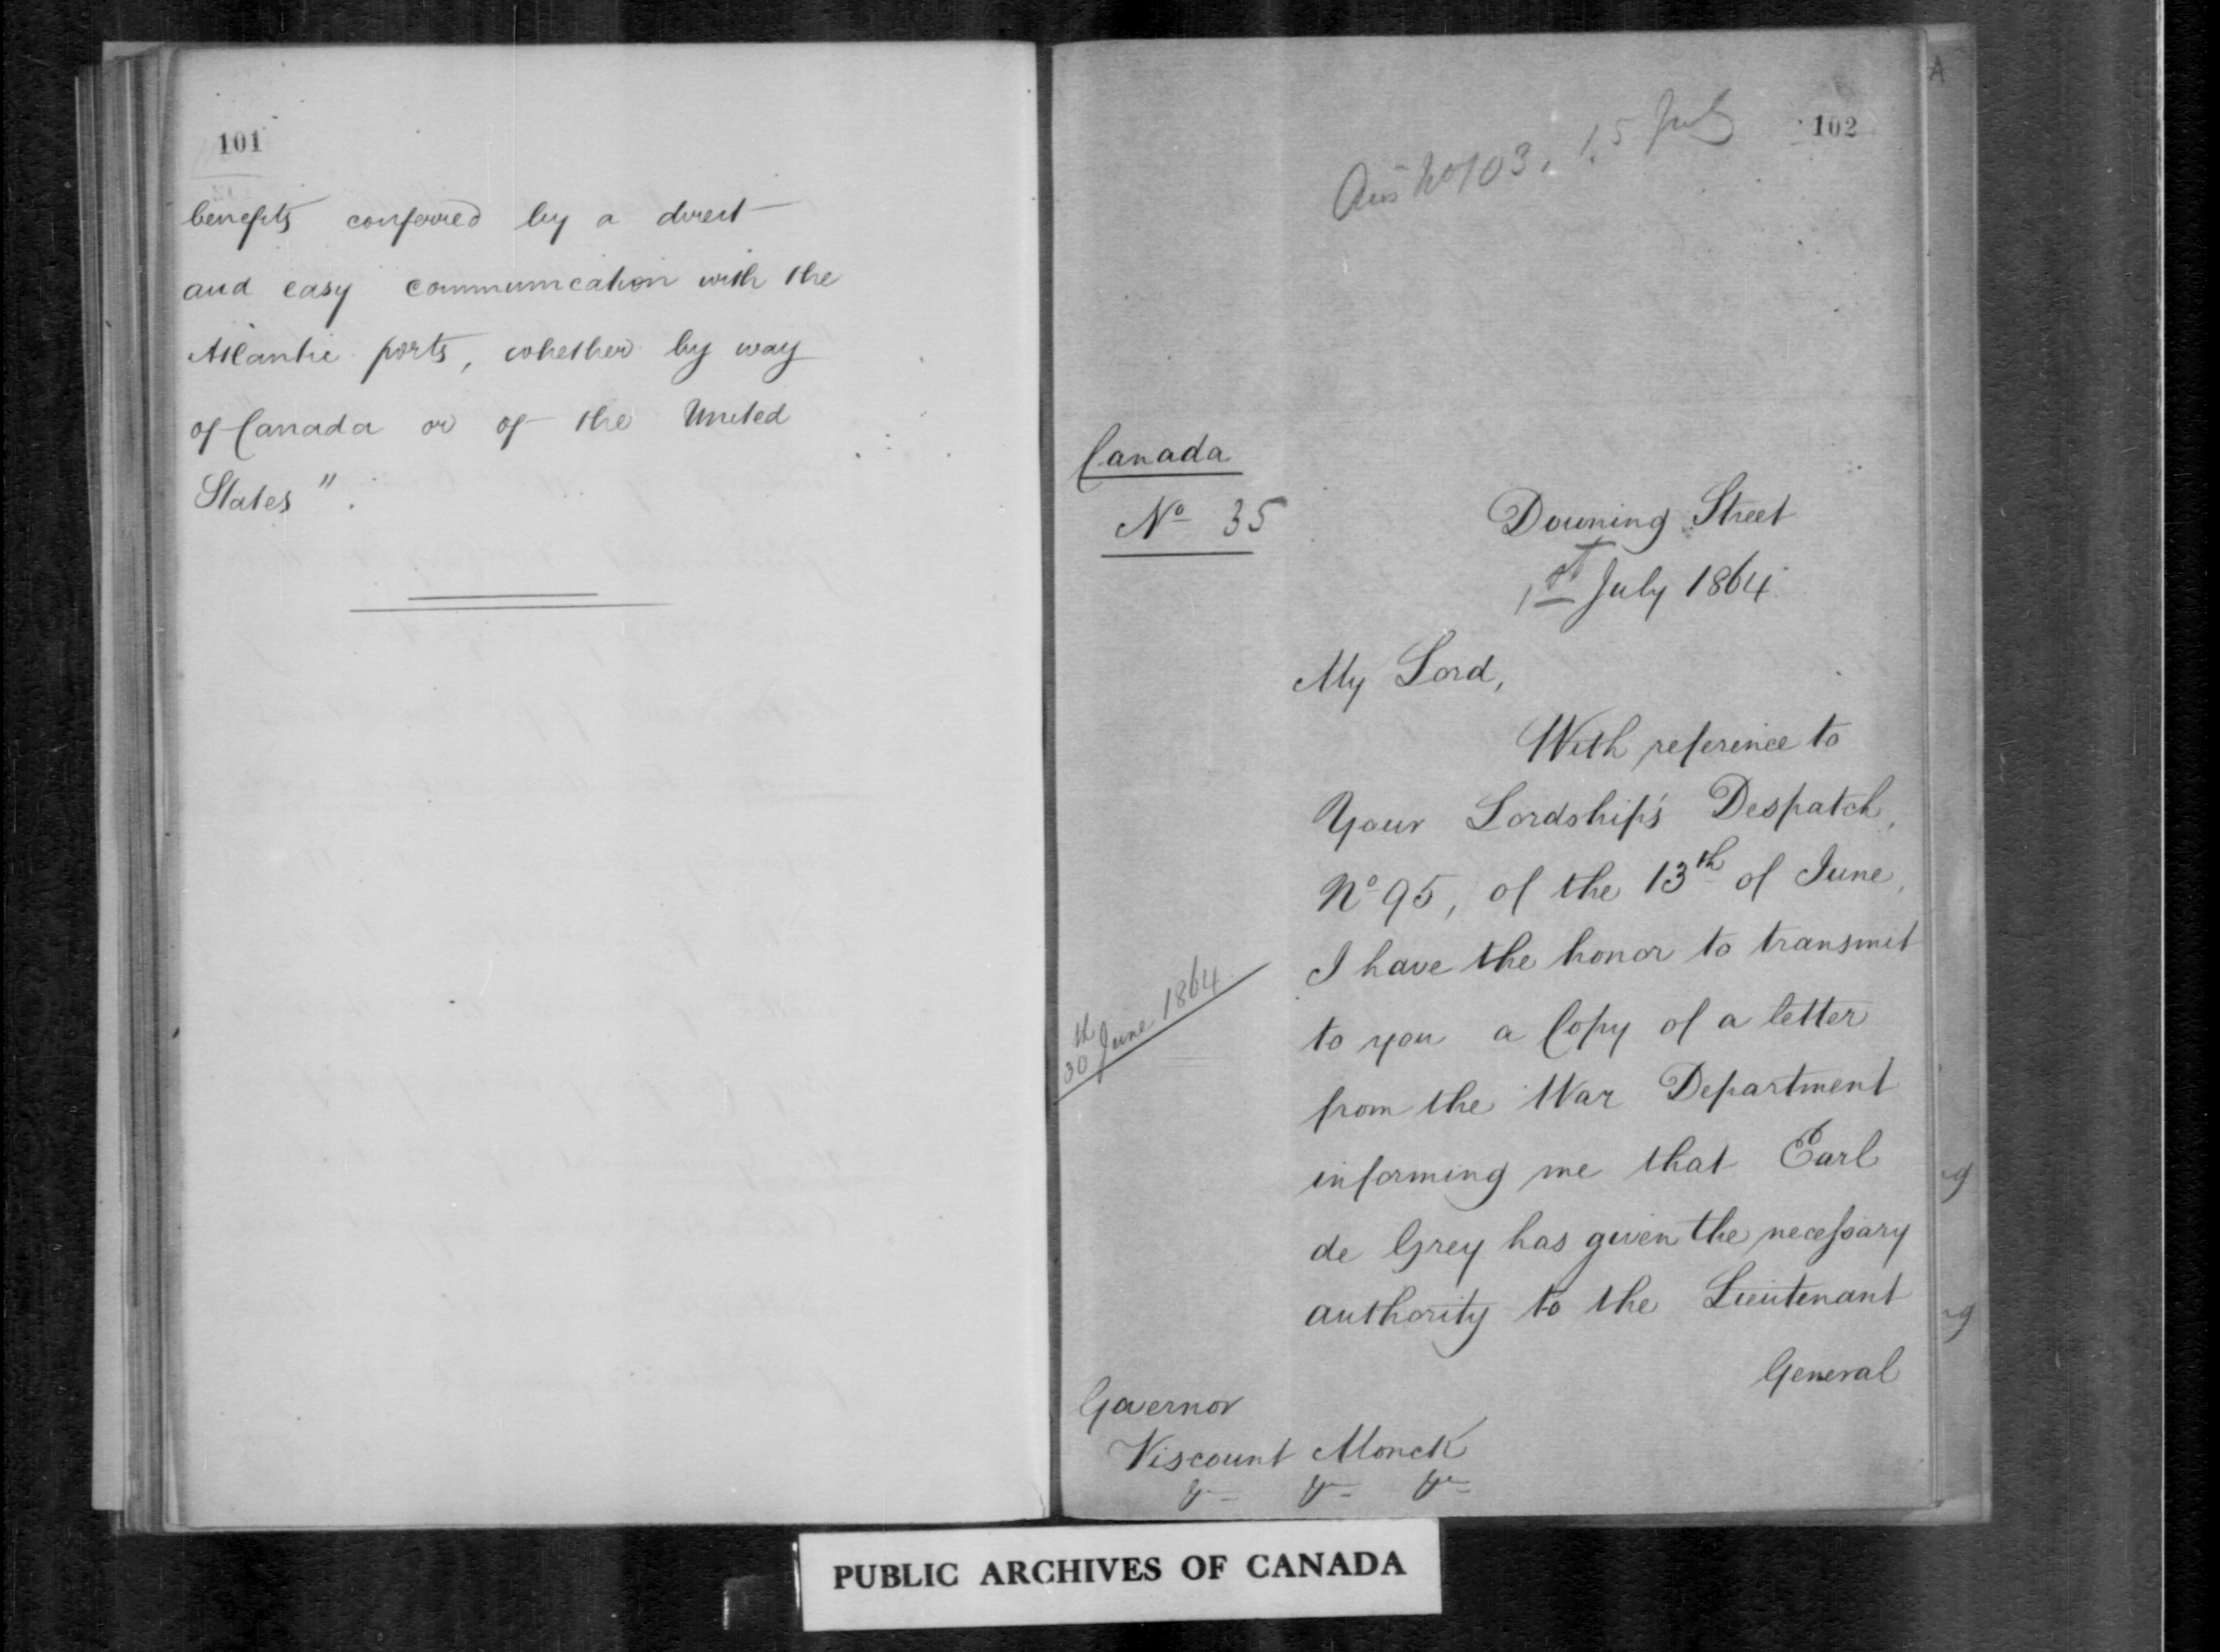 101
benefits conferred by a direct
and easy communication with the
Atlantic ports, whether by way
of Canada or of the United
States".
102
Ans No 103, 15 July
Canada
No 35
Downing Street
1st July 1864
My Lord,
With reference to
Your Lordship's Despatch,
No 95, of the 13th of June,
I have the honor to transmit
30th June 1864
to you a Copy of a letter
from the War Department
informing me that Earl
de Grey has given the necessary
authority to the Lieutenant
General
Governor
Viscount Monck
&c &c &c
PUBLIC ARCHIVES OF CANADA